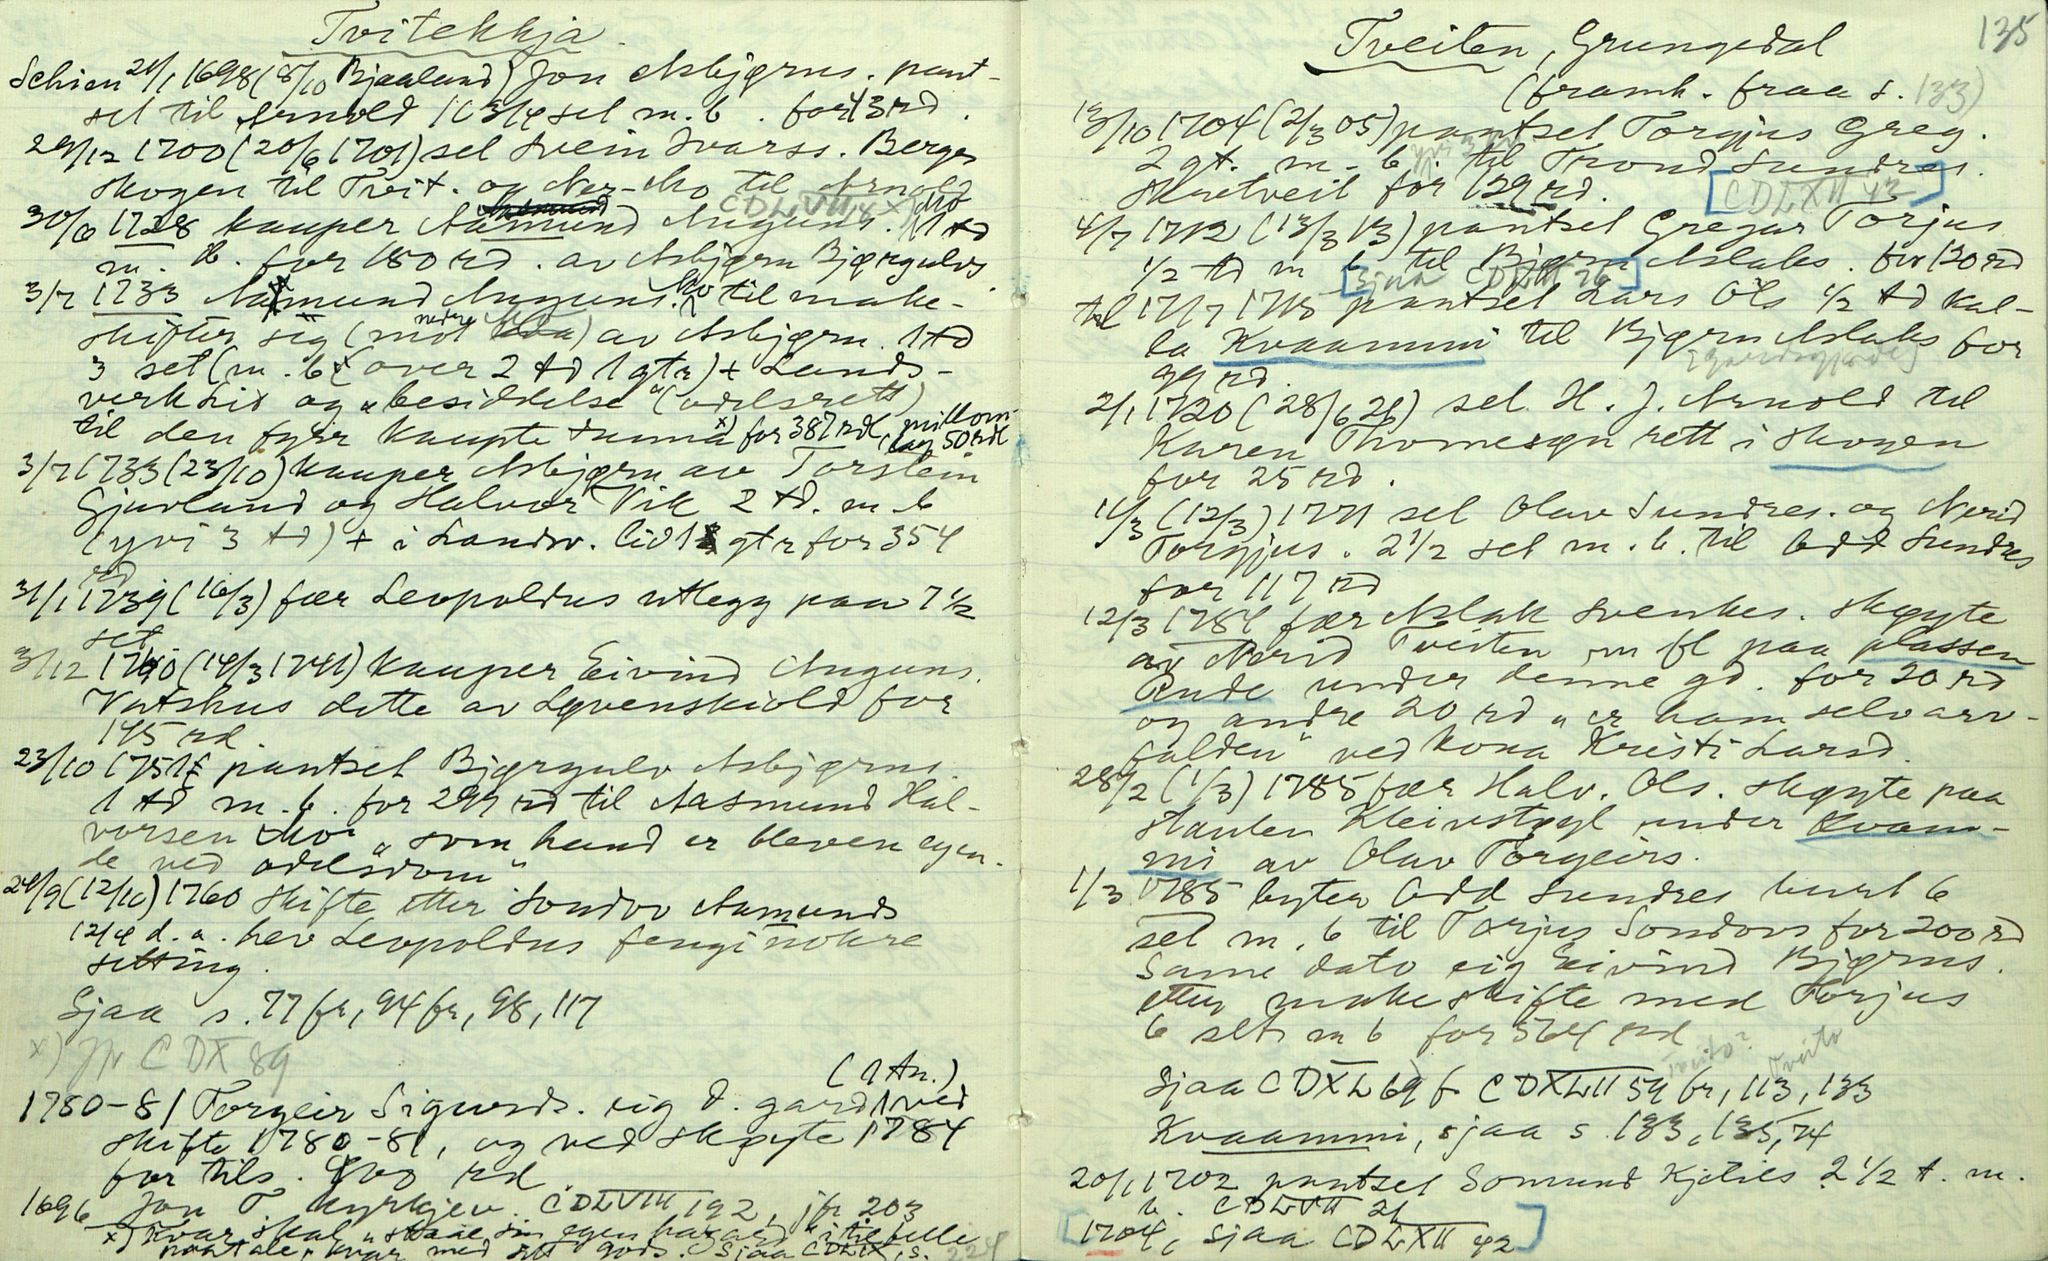 Tvitekkja
Schien 21/1 1698 (8/10 Bjaaland) Jon Asbjørns. pant-
sel til Arnold 1 3/4 set m. b. for 43 rd.
29/12 1700 (20/6 1701) sel Svein Ivarss. Berge
skogen til Tvit. og Ner-Mo til Arnold
CDLVII 18 x)
30/6 1728 kauper Aamund Auguns. Mo 1 td
m. b. for 150 rd. av Asbjørn Bjørgulvs
3/7 1733 Aamund Auguns. Mo til make-
skifter sig (mot nedre Moa) av Asbjørn 1 td
3 set (m. b. (over 2 td 1 gtr) + Lands-
verk lid og "besiddelse" (odelsrett)
til den fyrr kaupte tunna x) for 387 rd, millom-
lag 50 rd
3/7 1733 (23/10) kauper Asbjørn av Torstein
Gjuvland og Halvor Vik 2 td. m. b
(yvi 3 td) + i Landsv. lid 1 gtr for 354
rd
31/1 1739 (16/3) fær Leopoldus utlegg paa 7 1/2
set
3/12 1740 (14/3 1741) kauper Eivind Auguns.
Vatshus dette av Løvenskiold for
145 rd.
23/10 1751 pantsel Bjørgulv Asbjørns.
1 td m. b. for 299 rd til Aasmund Hal-
vorsen Mo "som hand er bleven eyen-
de ved odelsdom"
24/9 (12/10) 1760 skifte etter Sondov Aamunds
12/4 d. a. hev Leopoldus fengi nokre
setting.
Sjaa s. 77 fr, 94 fr, 98, 117
x) Jfr CDX 89
(1 An.)
1780-81 Torgeir Sigurds. eig d. gard 1 ved
skifte 1780-81, og ved skøyte 1784
for tils. 900 rd.
1696 Jon T. Kyrkjev. CDLVIII 192, jfr 203
x) Kvar skal "staae sin egen hazard" i tilfelle
paatale, kvar med sitt gods. Sjaa CDLIX, s.
224
135
Tveiten, Grungedal
(framh. fraa s. 133)
13/10 1704 (2/3 05) pantsel Torgjus Greg.
2 gt. m. b. til Trond Sundres.
Skretveit for 129 rd.
[CDLXII 42]
4/7 1712 (13/3 13) pantsel Gregar Torjus
1/2 td m b til Bjørn Aslaks. for 120 rd
[Sjaa CDLVII 26]
til 17/7 1715 pantsel Lars Ols 1/2 td kal-
la Kvaammi til Bjørn Aslaks for
99 rd.
2/1 1720 (28/6 26) sel H. J. Arnold til
Karen Thomesøn rett i Skogen
for 25 rd.
11/3 (12/3) 1771 sel Olav Sundres. og Aerid
Torgjus. 2 1/2 set m. b. til Odd Sundres
for 117 rd
12/3 1784 fær Aslak Svenkes. skøyte
av Aerid Tveiten m fl paa plassen
Rude under denne gd. for 20 rd
og andre 20 rd "er ham selv arv-
falden" ved kona Kristi Larsd.
28/2 (1/3) 1785 fær Halv. Ols. skøyte paa
Haulen Kleivstøyl under Kvam-
mi av Olav Torgeirs.
1/3 1785 byter Odd Sundres burt 6
set m. b til Tarjus Sondovs for 200 rd
Same dato eig Eivind Bjørns.
etter makeskifte med Torjus
6 set m b for 564 rd
Tveito? Tveito
Sjaa CDXL 69 f CDXLII 59 fr, 113, 133
Kvaammi, sjaa s 133, 135, 74
20/1 1702 pantsel Somund Kjetils 2 1/2 t. m.
b. CDLVII 21
[1704, sjaa CDLXII 42]